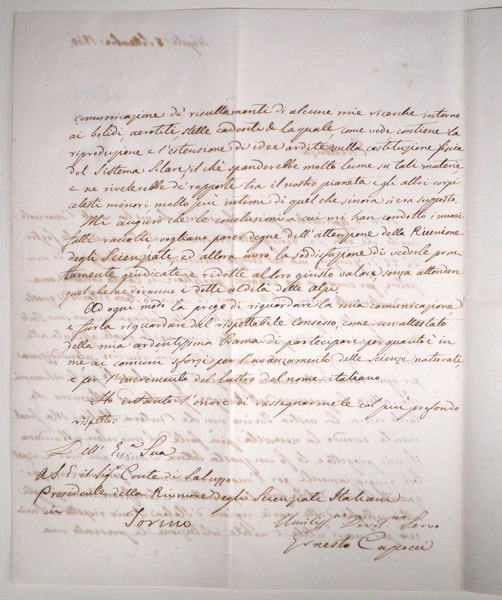 comunicazione de' risultamenti di alcune mie ricerche intorno
ai bolidi, aeroliti, stelle cadenti & la quale come vede contiene la
riproduzione e l'estensione di idee ardite sulla costituzione fisica
del Sistema Solare, il chè spanderebbe molto lume su tali materie,
e ne rivelerebbe de' rapporti tra il nostro pianeta e gli altri corpi
celesti minori molto più intimi di quel che sinora si era supposto.
Mi auguro che le conclusioni a cui mi han condotto i nuovi
fatti raccolti vogliano parer degne dell'attenzione della Riunione
degli Scienziati, ed allora avrò la soddisfazione di vederle pron-
tamente giudicate e ridotte al loro giusto valore senza attendere
quel che ne diranno i dotti al di là delle Alpi.
Ad ogni modo la prego di riguardare la mia comunicazione
e farla riguardare dal rispettabile Consesso, come un attestato
della mia ardentissima brama di partecipare per quanto è in
me ai comuni sforzi per l'avanzamento delle Scienze naturali,
e per l'incremento del lustro del nome italiano.
Ho intanto l'onore di rassegnarmele col più profondo
rispetto.
Dell' Ecc.a Sua
A S. E. il Sig.r Conte di Saluzzo
Presidente della Riunione degli Scienziati Italiani
in
Torino
Umiliss.mo Devot.mo Servo
Ernesto Capocci